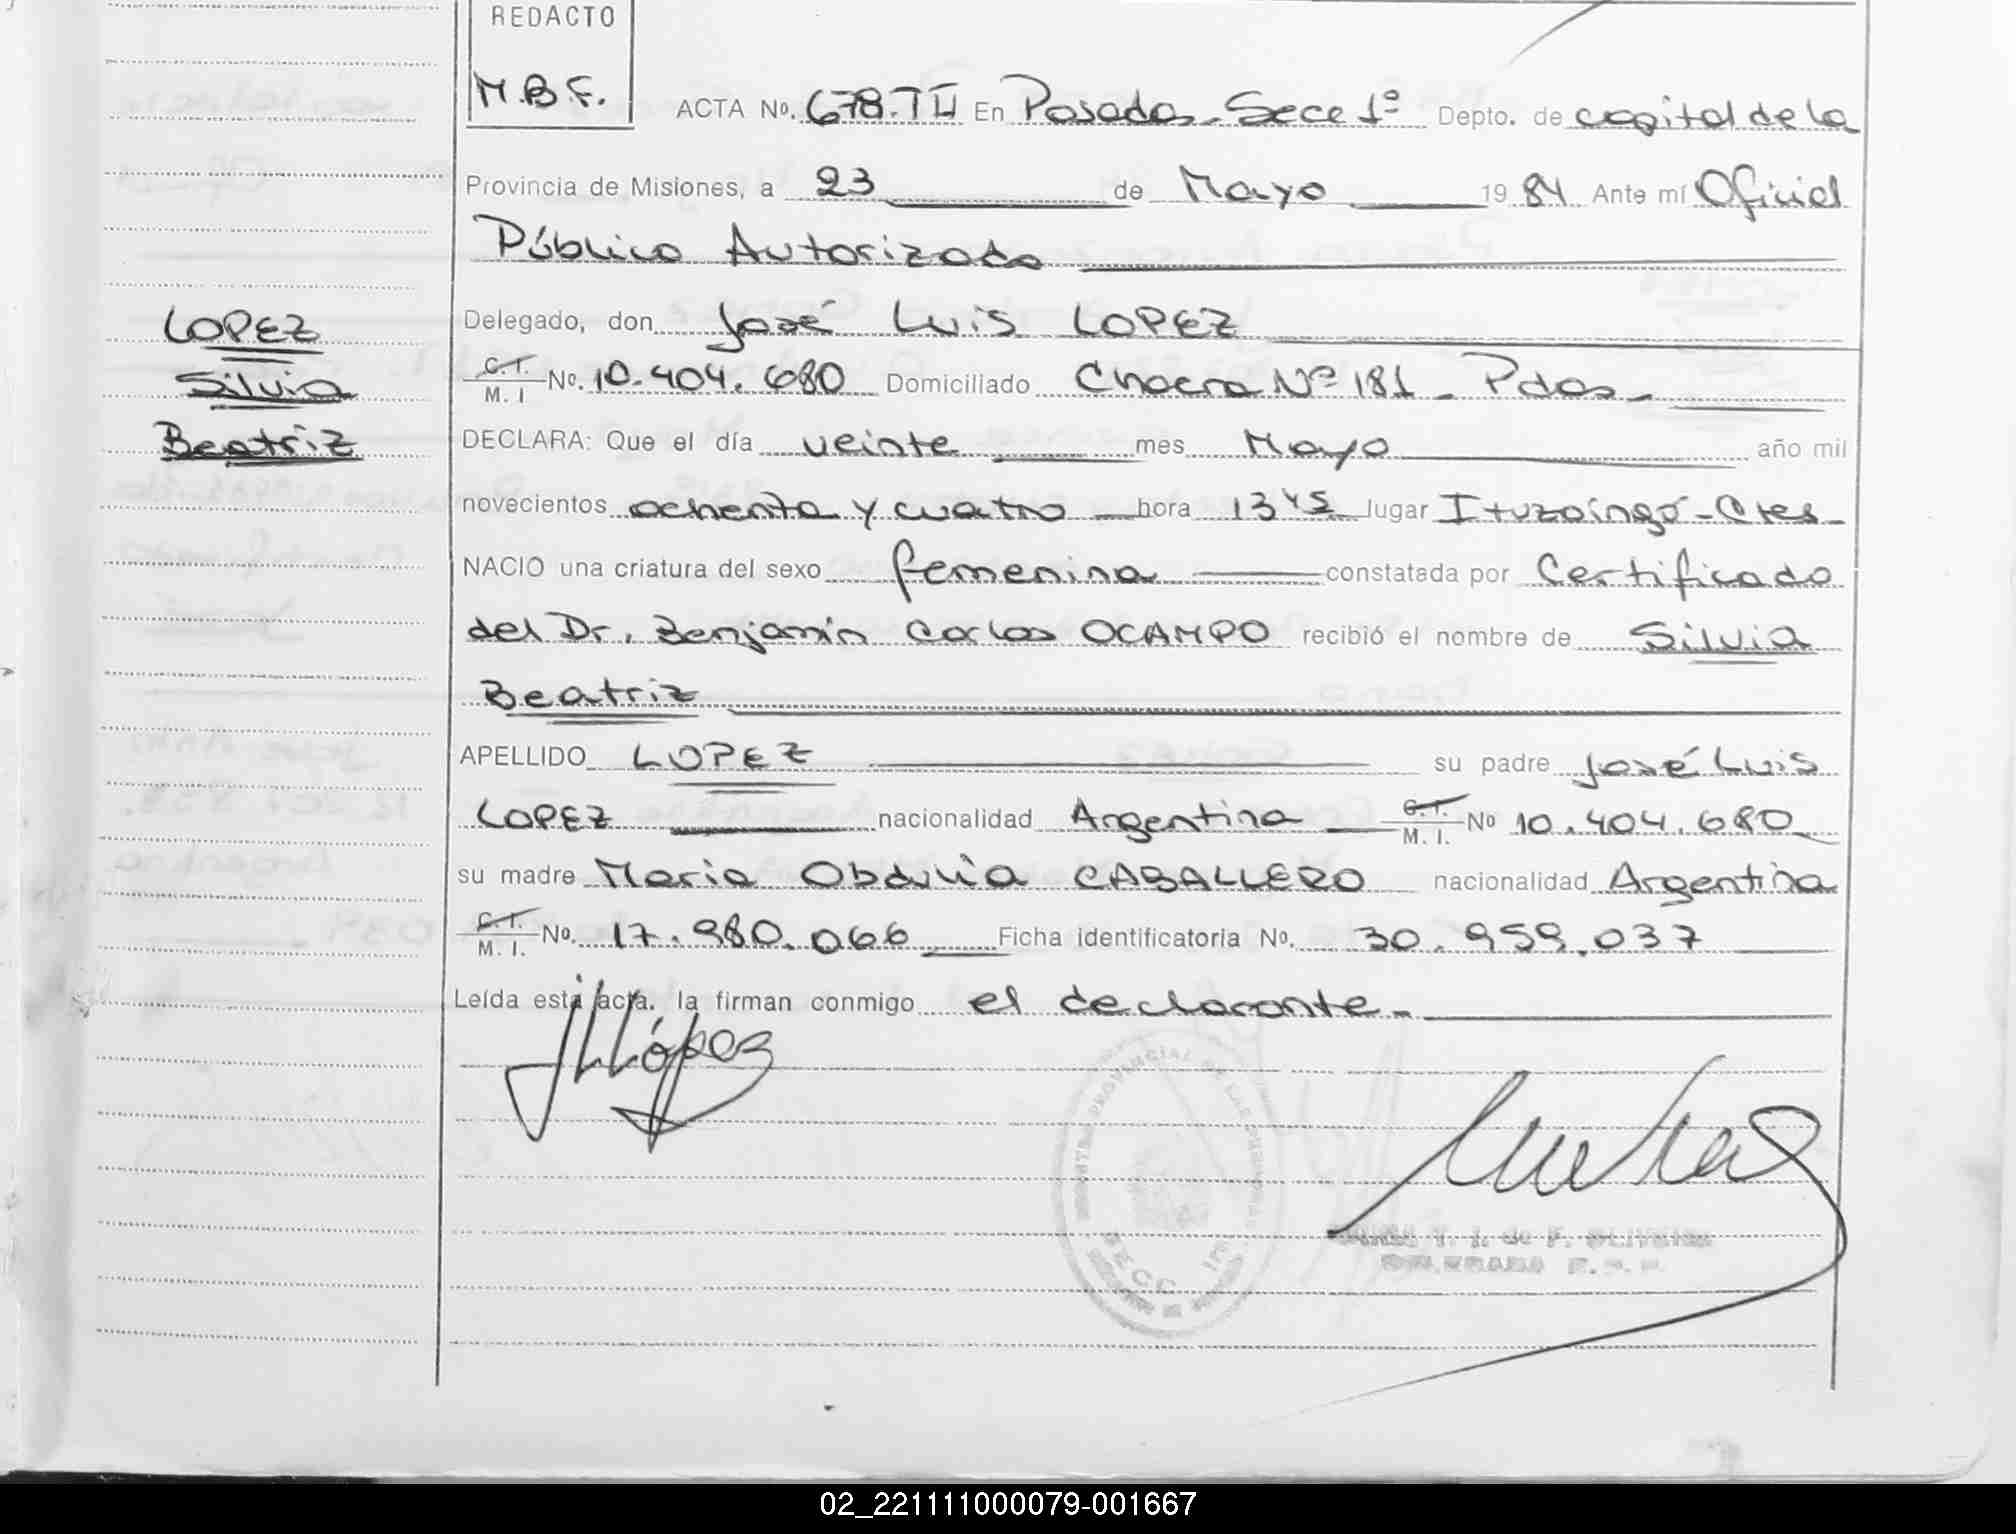 REDACTO
M.B.F.
ACTA No. 678.TII En Posadas. Secc 1º Depto. de capital de la
Provincia de Misiones, a 23 de Mayo 1984 Ante mí Oficial
Público Autorizado
Delegado, don José Luis LOPEZ
C.I. M. I No. 10.404.680 Domiciliado Chacra Nº 181 - Pdas -
DECLARA: Que el día veinte mes Mayo año mil
novecientos ochenta y cuatro hora 13 45 lugar Ituzaingó - Ctes -
NACIO una criatura del sexo femenina constatada por Certificado
del Dr. Benjamín Carlos OCAMPO recibió el nombre de Silvia
Beatriz
APELLIDO LOPEZ su padre José Luis
LOPEZ nacionalidad Argentina C.I. M. I. No 10.404.680
su madre Maria Obdulia CABALLERO nacionalidad Argentina
C.I. M. I. No. 17.980.066 Ficha identificatoria No. 30.959.037
Leída esta acta, la firman conmigo el declarante.-
LOPEZ
Silvia
Beatriz
JLLópez
PROVINCIAL DE LAS PERSONAS
SECC
Y. I. de F. OLIVEIRA
02_221111000079-001667